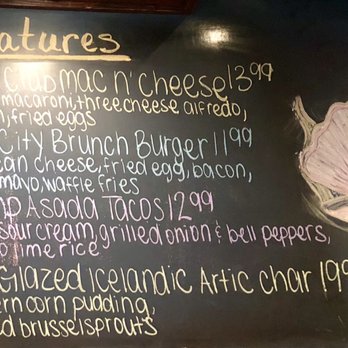 atures
Club mac n' Cheese 13.99
macaroni, three cheese alfredo,
n, fried eggs
City Brunch Burger 11.99
can cheese, fried egg, bacon,
mayo, waffle fries
Asada Tacos 12.99
sour cream, grilled onion & bell peppers,
lime rice
Glazed Icelandic Artic char 19
ern corn pudding,
ed brusselsprouts